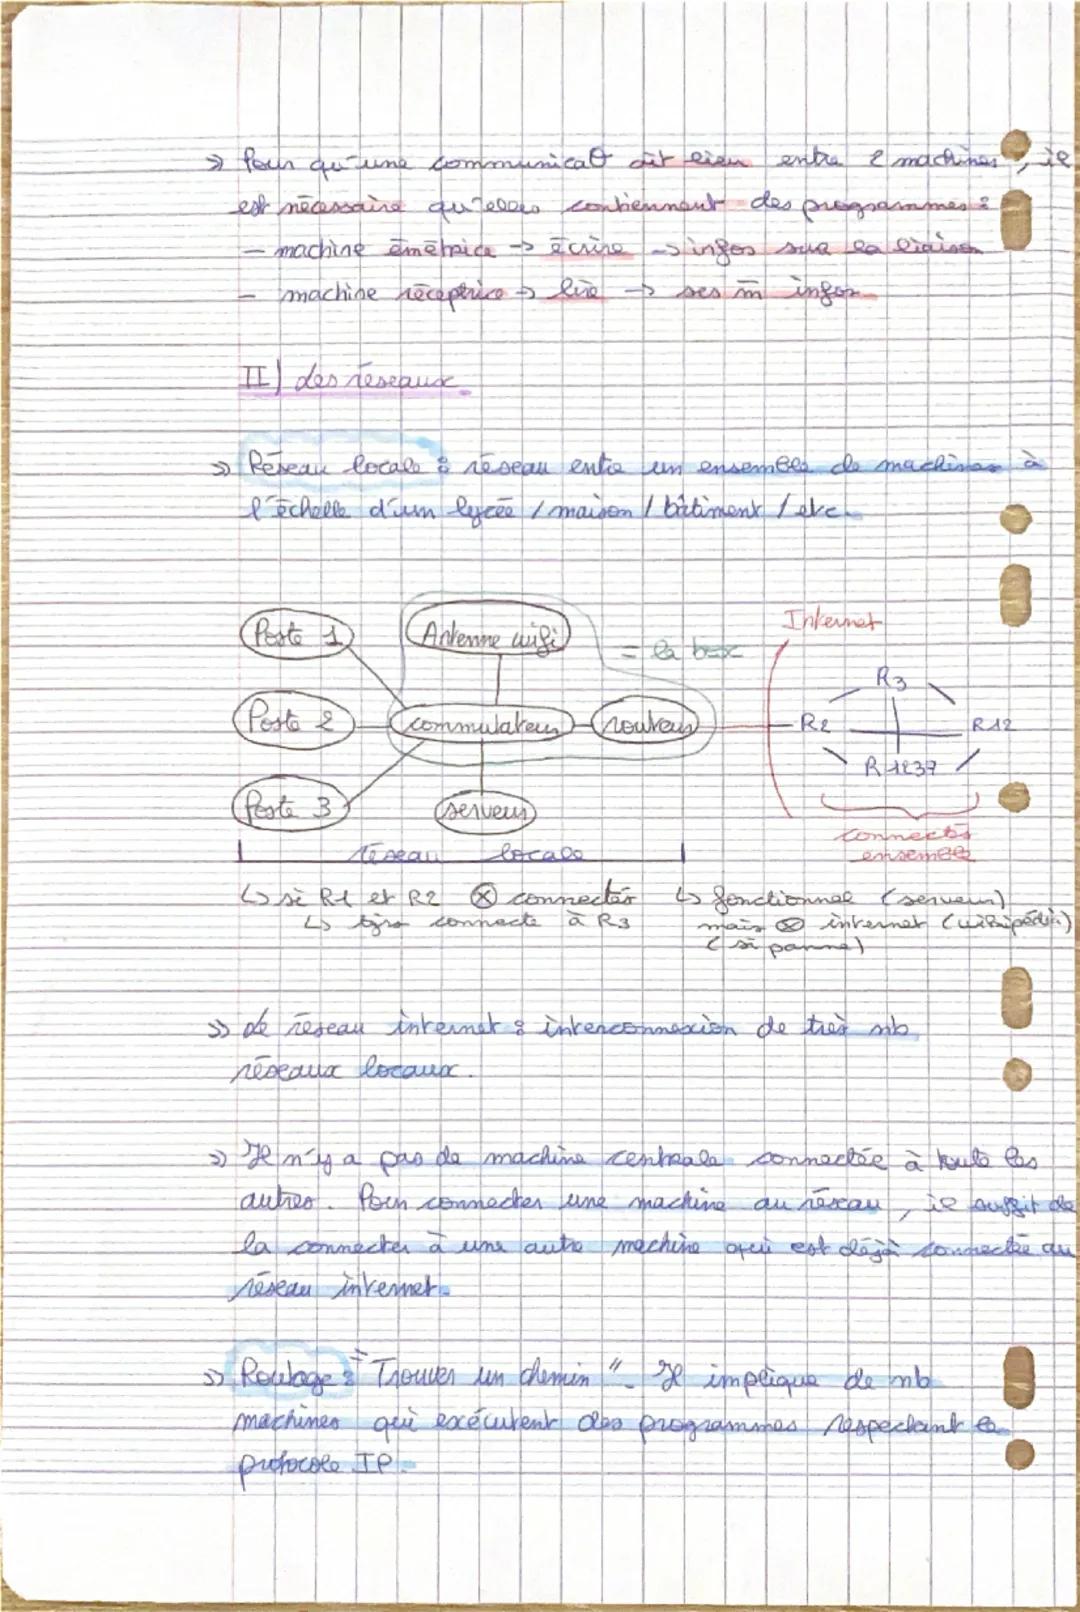 » Pour qu'une communicat° ait lieu entre 2 machines, il
est nécessaire qu'elles contiennent des programmes :
- machine émétrice → écrire → infos sur la liaison
- machine réceptrice → lire → ses m̄ infos
II) des réseaux.
» Réseau locale : réseau entre un ensemble de machines à
l'échelle d'un lycée / maison / bâtiment / etc.
Internet
Poste 1 Antenne wifi = la box
R3
Poste 2 commutateur routeur R2 R12
R1237
Poste 3 serveur
connectés
ensemble
réseau locale
↳ si R1 et R2 ⊗ connecter
↳ tjrs connecte à R3
↳ fonctionnel (serveur)
mais ⊗ internet (wikipédia)
(si panne)
» Le réseau internet : interconnexion de très nb
réseaux locaux.
» Il n'y a pas de machine centrale connectée à toute les
autres. Pour connecter une machine au réseau, il suffit de
la connecter à une autre machine qui est déjà connectée au
réseau internet.
» Routage : "Trouver un chemin". Il implique de nb
machines qui exécutent des programmes respectant le
protocole IP.